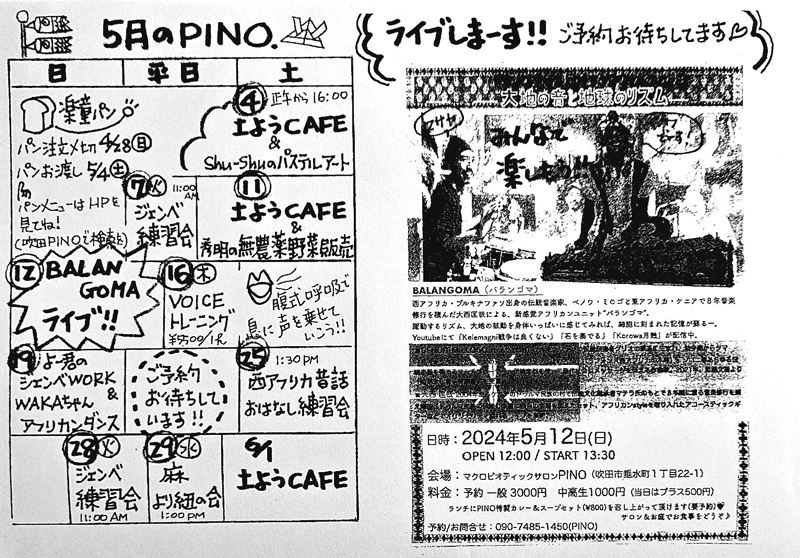 5月のPINO.
日
平日
土
楽童パン
パン注文〆切 4/28 日
パンお渡し 5/4 土
パンメニューはHPを
見てね!
(吹田PINOで検索を)
④ 正午から16:00
土ようCAFE
&
Shu-Shuのパステルアート
⑦ 火 11:00
AM
ジェンベ
練習会
⑪
土ようCAFE
&
秀明の無農薬野菜販売
⑫ BALAN
GOMA
ライブ!!
⑯ 木
VOICE
トレーニング
腹式呼吸で
息に声を乗せて
いこう!!
⑲ よー君の
ジェンベWORK
&
WAKAちゃん
アフリカンダンス
ご予約
お待ちして
います!!
㉕ 1:30PM
西アフリカ昔話
おはなし練習会
㉘ 火
ジェンベ
練習会
11:00AM
㉙ 水
麻
より紐の会
1:00pm
6/1
土ようCAFE
ライブしまーす!! ご予約お待ちしてます
大地の音と地球のリズム
みんなで
楽しもう!!
BALANGOMA(バランゴマ)
西アフリカ・ブルキナファソ出身の伝統音楽家、ベノワ・ミロゴと東アフリカ・ケニアで8年音楽
修行を積んだ大西匡哉による、新感覚アフリカンユニット"バランゴマ"。
躍動するリズム、大地の鼓動を身体いっぱいに感じてみれば、細胞に刻まれた記憶が蘇る—。
Youtubeにて『Kelemagni戦争は良くない』『石を奏でる』『Korowa月兎』が配信中。
日時:2024年5月12日(日)
OPEN 12:00 / START 13:30
会場:マクロビオティックサロンPINO(吹田市垂水町1丁目22-1)
料金:予約 一般 3000円 中高生1000円(当日はプラス500円)
ランチにPINO特製カレー&スープセット(¥800)を召し上がって頂けます(要予約)♥
サロン&お庭でお食事をどうぞ♪
予約/お問合せ:090-7485-1450(PINO)